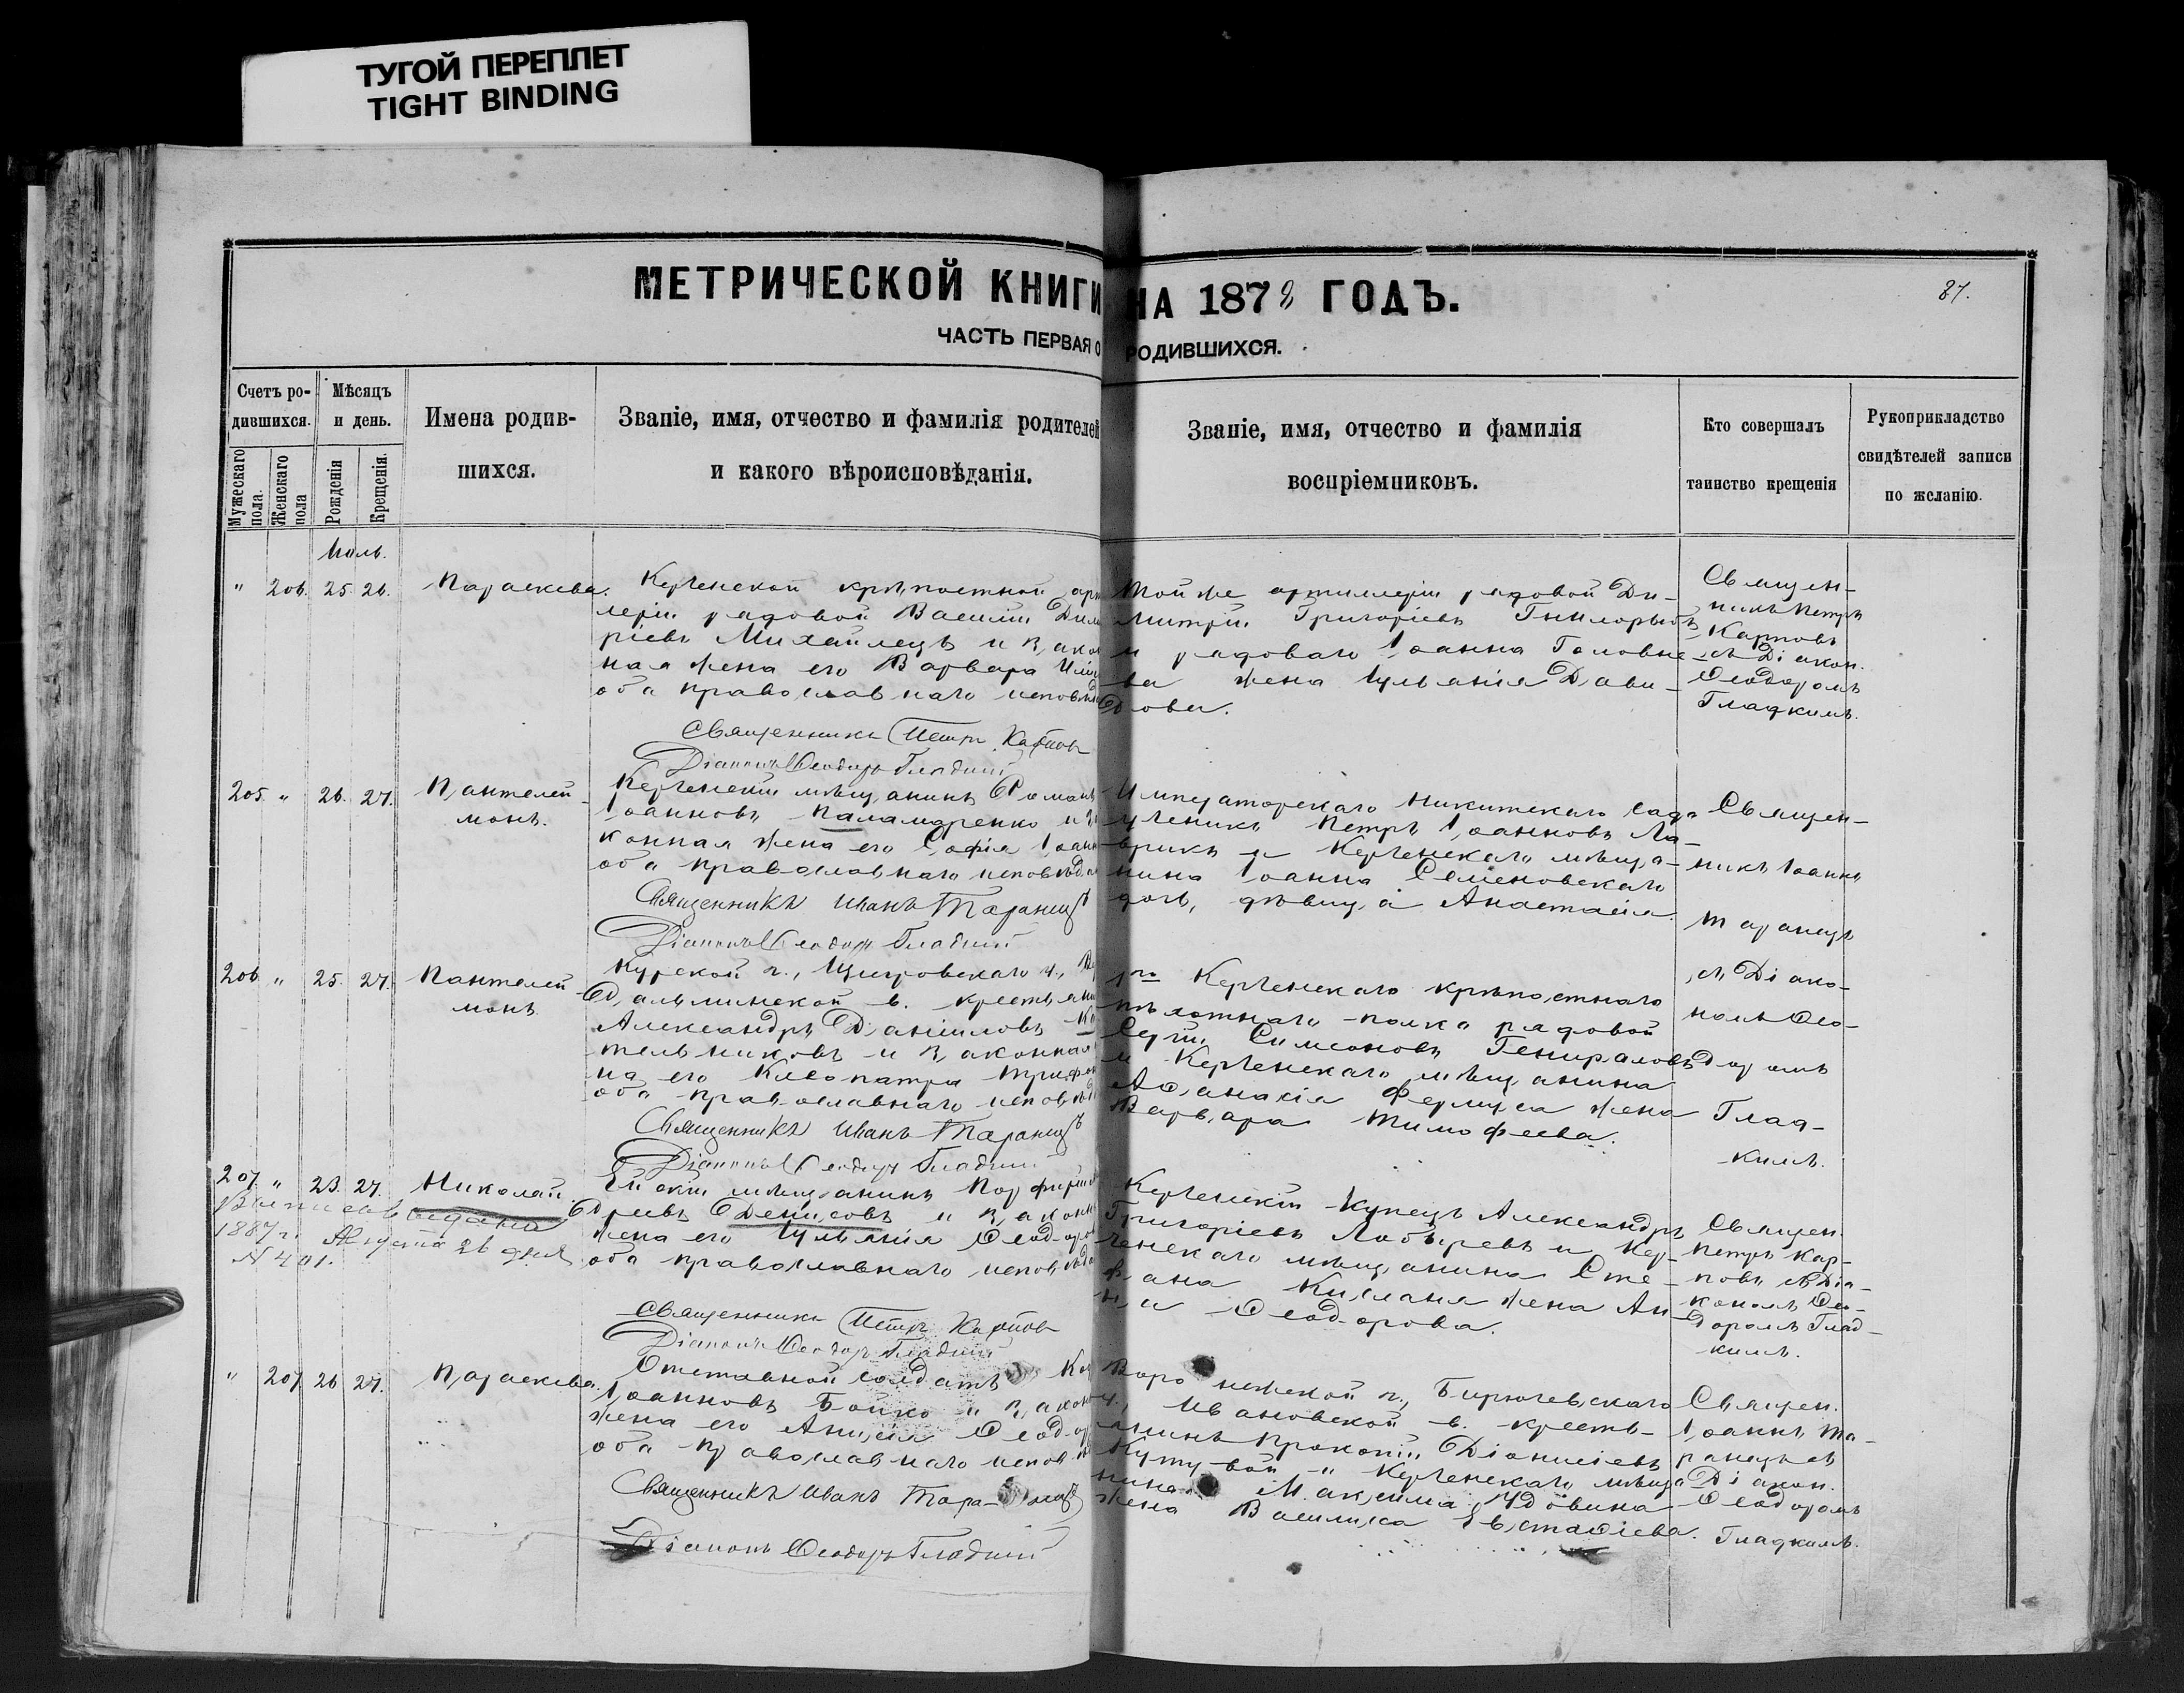 ТУГОЙ ПЕРЕПЛЕТ
TIGHT BINDING
МЕТРИЧЕСКОЙ КНИГИ НА 187 ГОДЪ.
87.
ЧАСТЬ ПЕРВАЯ О РОДИВШИХСЯ.
Счетъ ро-
дившихся.
Мужескаго пола.
Женскаго пола
Мѣсяцъ
и день.
Рожденія
Крещенія.
Имена родив-
шихся.
Званіе, имя, отчество и фамилія родителей
и какого вѣроисповѣданія.
Званіе, имя, отчество и фамилія
воспріемниковъ.
Кто совершалъ
таинство крещенія
Рукоприкладство
свидѣтелей записи
по желанію.
Июль.
" 206. 25. 26.
Параскева.
Керченской крѣпостной
леріи рядовой Василій
ріевъ Михайлецъ и закон
ная жена его Варвара
оба православнаго исповѣд
Священникъ Петръ Карповъ
Діаконъ Ѳеодоръ Гладкій
Той же артиллеріи рядовой Ди-
митрій Григоріевъ
и рядоваго Іоанна Головне-
ва жена Іуліанія Дави-
дова.
Священ-
никъ Петръ
Карповъ
съ Діакон.
Ѳеодоромъ
Гладкимъ.
205 " 26. 27.
Пантелей-
монъ.
Керченскій мѣщанинъ Романъ
Іоанновъ Паламаренко и за
конная жена его Софія Іоанн
оба православнаго исповѣд
Священникъ Иванъ Таранецъ
Діаконъ Ѳеодоръ Гладкій
Императорскаго Никитскаго сада
ученикъ Петръ Іоанновъ Ла-
врикъ и Керченскаго мѣща-
нина Іоанна Семеновскаго
дочь, дѣвица Анастасія
Священ-
никъ Іоаннъ
Таранецъ
206 " 25. 27.
Пантелей-
монъ
Курской г., Щигровскаго у.,
в. крестьянинъ
Александръ Даніиловъ
тельниковъ и законная
на его Клеопатра Трифон
оба православнаго исповѣд
Священникъ Иванъ Таранецъ
Діаконъ Ѳеодоръ Гладкій
1го Керченскаго крѣпостнаго
пѣхотнаго полка рядовой
Сергій Симеоновъ Генераловъ
и Керченскаго мѣщанина
Аѳанасія жена
Варвара Тимофеева.
съ Діако-
номъ Ѳео-
доромъ
Глад-
кимъ.
207. " 23. 27.
Николай
1887 г. Августа 26 дня
N 401.
Ейскій мѣщанинъ Порфирій
Денисовъ и закон
жена его Іуліанія Ѳеодор
оба православнаго исповѣд
Священникъ Петръ Карповъ
Діаконъ Ѳеодоръ Гладкій
Керченскій Купецъ Александръ
Григоріевъ и Кер-
ченскаго мѣщанина Сте-
фана жена Ан-
на Ѳеодорова.
Священ.
Петръ Кар-
повъ съ Діа-
кономъ Ѳео-
доромъ Глад-
кимъ.
" 207 26 27.
Параскева.
Отставной солдатъ
Іоанновъ Бойко и закон
жена его Анисія Ѳеодор
оба православнаго исповѣд
Священникъ Иванъ Таранецъ
Діаконъ Ѳеодоръ Гладкій
Воронежской г., Бирючевскаго
у., Ивановской в. кресть-
янинъ Прокопій Діонисіевъ
и Керченскаго мѣща
нина Максима Удовина
жена Василиса Евстаѳіева.
Священ.
Іоаннъ Та-
ранецъ съ
Діакон.
Ѳеодоромъ
Гладкимъ.